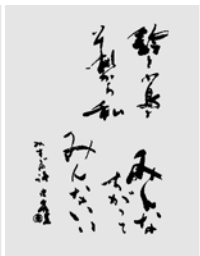 鈴と小鳥と
それから私
みんな
ちがって
みんないい
みすゞの詩